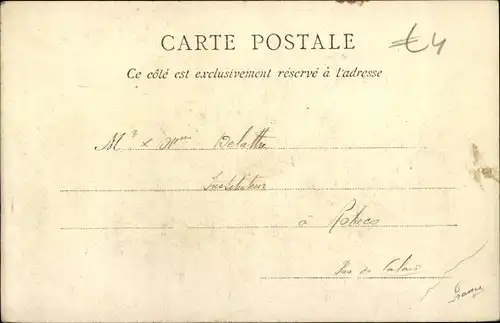 CARTE POSTALE
€4
Ce côté est exclusivement réservé à l'adresse
Mr & Mme Delattre
Instituteur
à
Pas de Calais
France